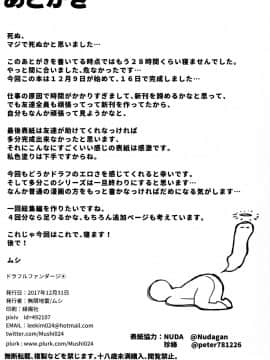 あとがき
死ぬ、
マジで死ぬかと思いました…
このあとがきを書いてる時点ではもう２８時間くらい寝ませんでした。
やっと間に合いました、危なかったです…
今回この本は１２月９日が始めて、１６日で完成しました…
仕事の原因で時間がかかりすぎまして、新刊を諦めるかなと思って、
でも友達全員も頑張ってって新刊を作ってたから、
自分もなんか頑張って見ようかなと、
最後表紙は友達が助けてくれなっければ
多分完成出来なかったと思います。
それにこんなにすごくいい感じの表紙は感激です。
私色塗りは下手ですからね。
今回もどうかドラフのエロさを感じてくれると幸いです。
そして多分このシリーズは一旦終わりにすると思います…
なんか普通の漫画の方をもっと書かなっければだめになる気がします…
一回総集編を作りたいですな。
４回分なら足りるかな、もちろん追加ページも考えています。
これじゃ今回はこれで、寝ます！
後で！
ムシ
ドラフルファンダージ④
発行日：2017年12月31日
発行者：無間地套/ムシ
印刷：緑陽社
pixiv id=492107
EMAIL : leekim024@hotmail.com
twitter.com/Mushi024
www.plurk.com/Mushi024
表紙協力：NUDA @Nudagan
珍蜂 @peter781226
無断転載、複製などを禁じます、十八歳未満購入、閲覧禁止。